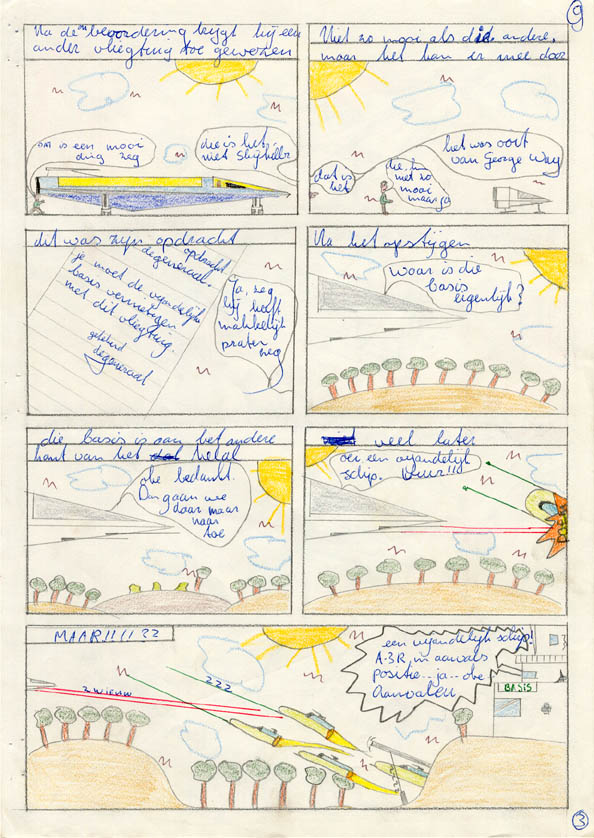 9
Na de bevordering krijgt hij een
ander vliegtuig toe gewezen
dat is een mooi
ding zeg
die is het
niet
Niet zo mooi als die andere.
maar het kan er mee door
dat is
het
die, hm
niet zo
mooi
maar ja
het was ooit
van George Way
dit was zijn opdracht
opdracht
degeneraal.
je moet de vijandelijke
basis vernietigen
met dit vliegtuig.
getekend
degeneraal
Ja, zeg
hij heeft
makkelijk
praten
zeg
Na het opstijgen
waar is die
basis
eigenlijk?
die basis is aan het andere
kant van het heelal
oke bedankt.
Dan gaan we
daar maar
naar
toe
veel later
oei een vijandelijk
schip. Vuur!!!
MAAR!!!!! ??
Zwieuw
zzz
een vijandelijk schip!
A-3R, in aanvals
positie...ja..oke
Aanvallen
BASIS
3